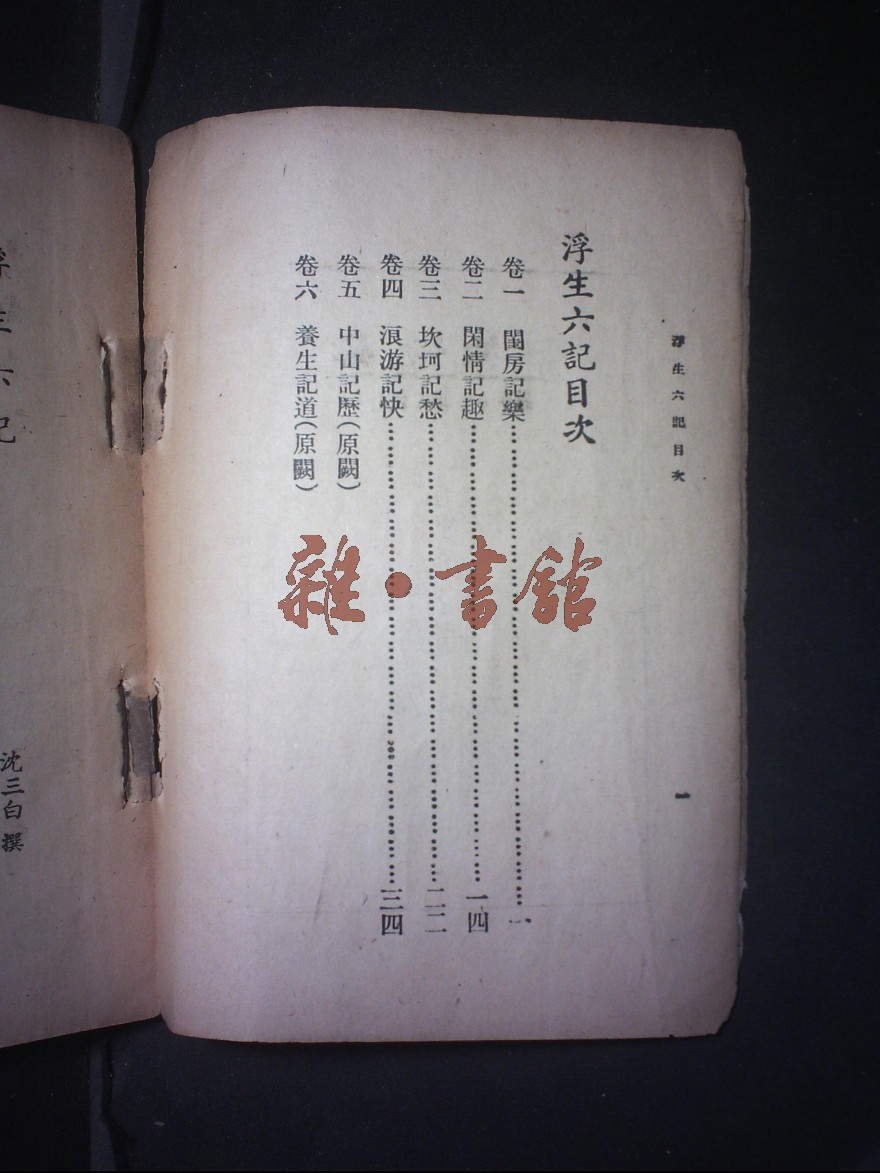 浮生六記目次
一
浮生六記目次
卷一 閨房記樂 一
卷二 閑情記趣 一四
卷三 坎坷記愁 二二
卷四 浪游記快 三四
卷五 中山記歷(原闕)
卷六 養生記道(原闕)
雜·書館
浮生六記
沈三白撰